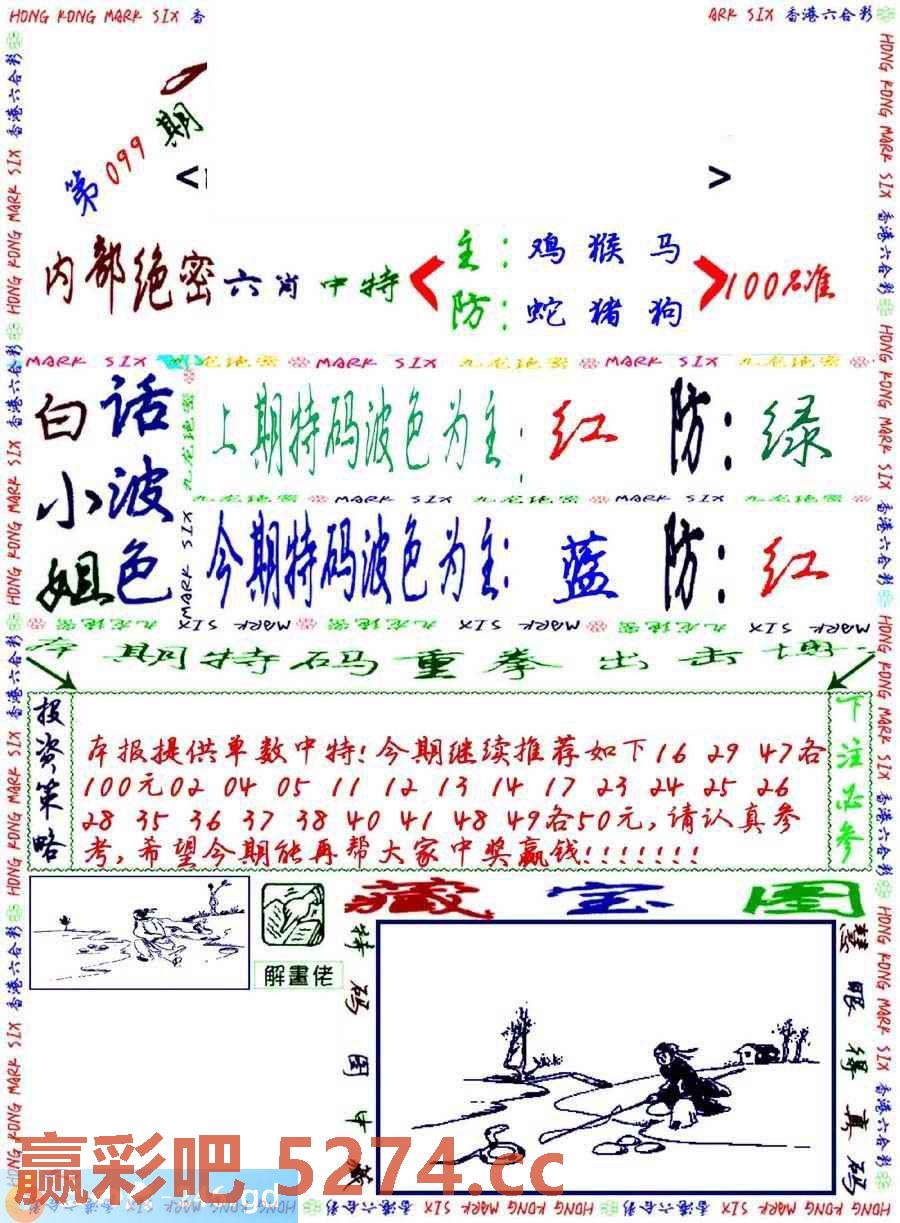 HONG KONG MARK SIX 香
ARK SIX 香港六合彩
第099期
<
>
内部绝密六肖中特
主：鸡猴马
防：蛇猪狗
100%准
MARK SIX 九龙绝密 MARK SIX 九龙绝密 MARK SIX 九龙绝密
白话
小波
姐色
上期特码波色为主：红 防：绿
九龙绝密 MARK SIX 九龙绝密 MARK SIX
今期特码波色为主：蓝 防：红
MARK SIX 九龙绝密 MARK SIX 九龙绝密 MARK SIX
本期特码重拳出击
投资策略
本报提供单数中特！今期继续推荐如下16 29 47各
100元02 04 05 11 12 13 14 17 23 24 25 26
28 35 36 37 38 40 41 48 49各50元，请认真参
考，希望今期能再帮大家中奖赢钱！！！！！！！
下注必参
藏宝图
解畫佬
特码图中
慧眼得真码
赢彩吧 5274.cc
HONG KONG MARK SIX 香港六合彩